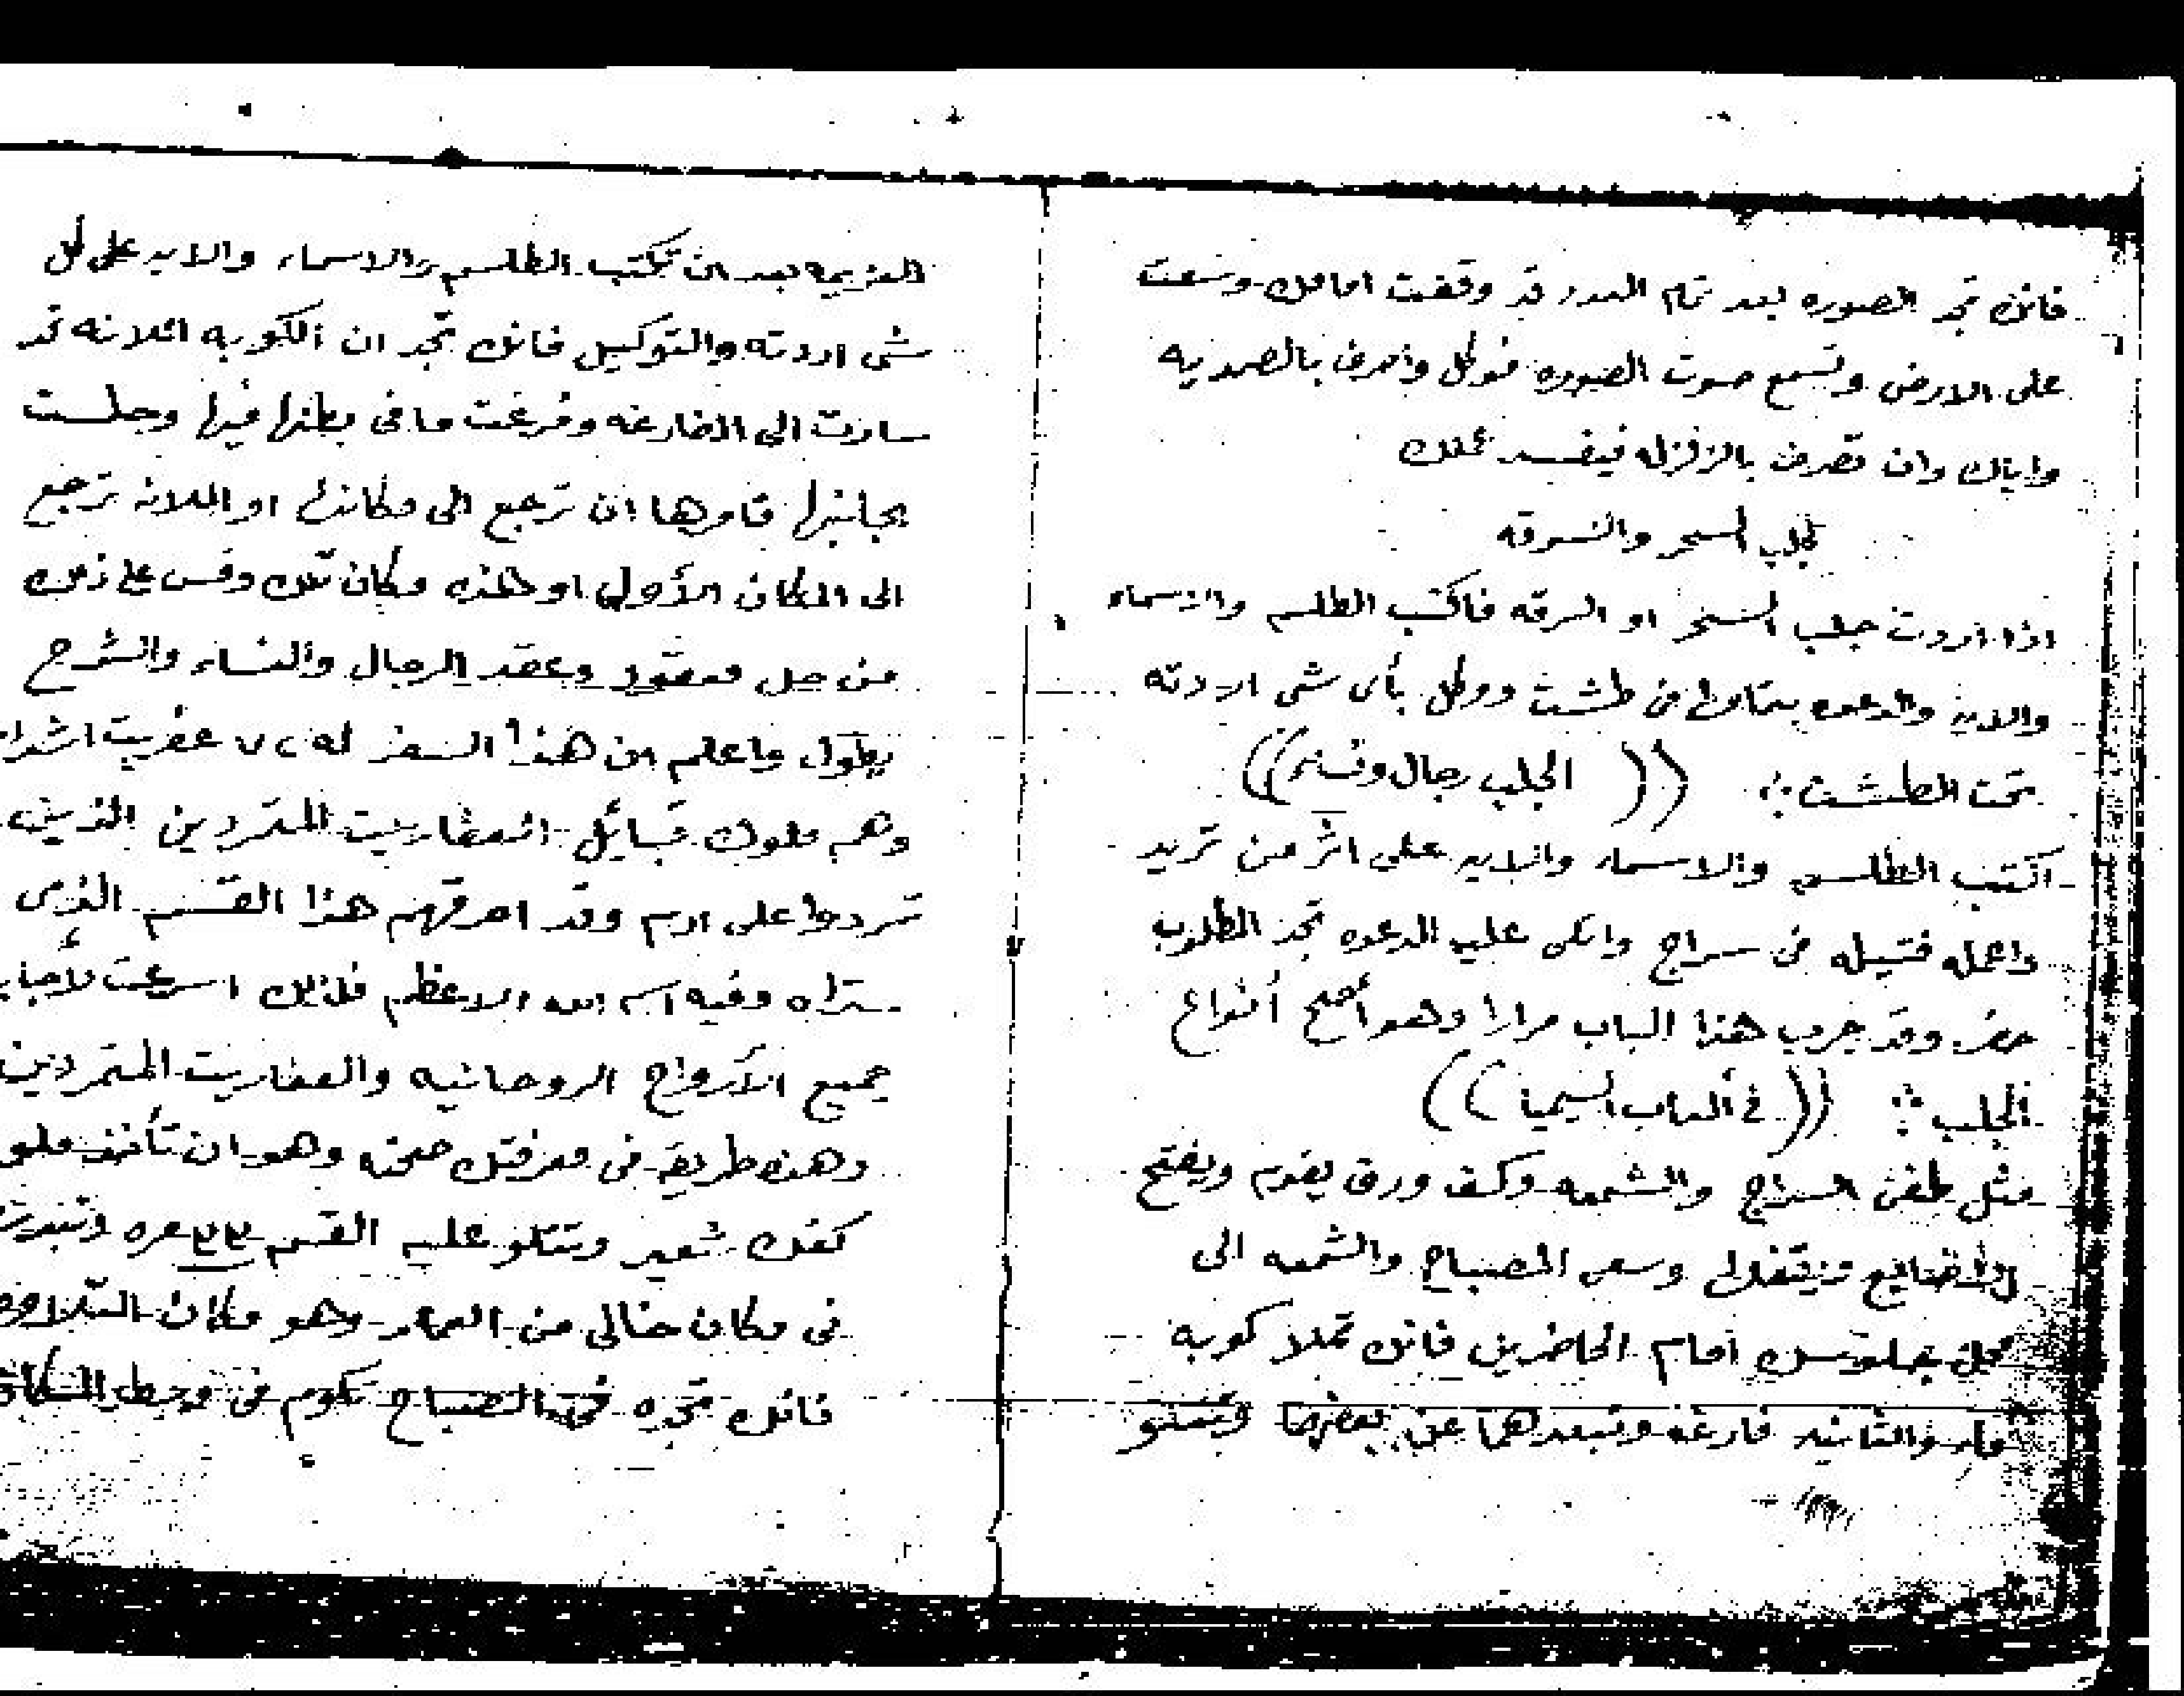 فانك تجد الصوره بعد تمام العدد قد وقفت امامك وسعت
على الارض وتسمع صوت الصوره فوكل واصرف بالصمديه
واياك وان تصرف بالزلزله فيفسد عملك
لجلب السحر والسرقه
اذا اردت جلب السحر او السرقه فاكتب الطلسم والاسماء
والايه والدعوه في طشت ووكل بأى شى اردته
تحت الطشت : (( الجلب رجال ونساء ))
اكتب الطلسم والاسماء والايه على اثر من تريد
واعمله فتيله فى سراج واتلى عليه الدعوه تجد المطلوب
حضر وقد جرب هذا الباب مرارا وهو أصح أنواع
الجلب : (( فى ألعاب السيميا ))
مثل طفى السراج والشمعه وكف ورق يقوم ويفتح
وسعى المصباح والشمعه الى
محل جلوسك أمام الحاضرين فانك تملا كوبه
ماء والثانيه فارغه وتبعدهما عن بعضهما وتتلو
العزيمه بعد ان تكتب الطلسم والاسماء والايه على كل
شى اردته والتوكيل فانك تجد ان الكوبه الملانه قد
سارت الى الفارغه وفرغت ما فى بطنها فيها وجلست
بجانبها فامرها ان ترجع الى مكانها او الملانه ترجع
الى المكان الأول او هذه مكان تلك وقس على ذلك
من حل معقود وعقد الرجال والنساء والشرح
يطول واعلم ان هذا السفر له ٧٢ عفريت اشداء
وهم ملوك قبائل العفاريت المتمردين الذين
تمردوا على ادم وقد احرقهم هذا القسم الذى
ستراه وفيه اسم الله الاعظم فلذلك اسرعت لأجابة
جميع الأرواح الروحانيه والعفاريت المتمردين
وهذه طريقه فى معرفتك صحته وهو ان تأخذ ملو
كفك شعير وتتلو عليه القسم مره
فى مكان خالى من العمار وهو مكان التلاوه
فانك تجده فى الصباح